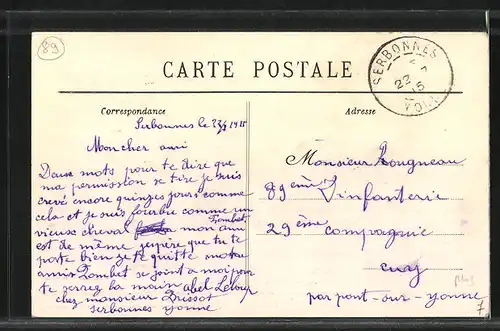 89
CARTE POSTALE
SERBONNES
22
15
YONNE
Correspondance
Adresse
Serbonnes le 1915
Mon cher ami
Deux mots pour te dire que
ma permission se tire je suis
crevé encore quinze jours comme
cela et je suis fourbu comme un
vieux cheval Tombet mon ami
est de même j'espère que tu te
porte bien je te quitte mon
ami Tombet se joint a moi pour
te serrez la main abel Leloup
chez monsieur
serbonnes yonne
Monsieur Rougneau
89ème d'infanterie
29ème compagnie
cuy
par pont-sur-yonne